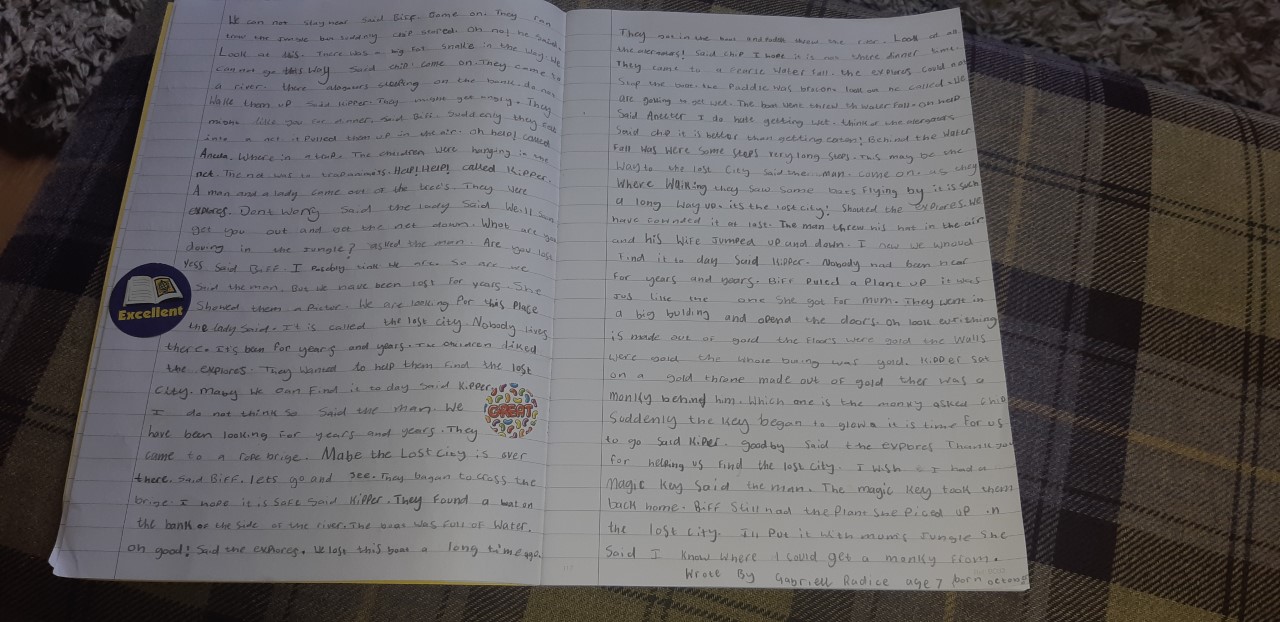 We can not stay near said Biff. Come on. They ran
throw the Jungle but suddnly chip stoped. Oh no! he said.
Look at this. There was a big fat snake in the way. We
can not go this way said chip. come on. They came to
a river. there aleagurs sleafing on the bank. do not
Wake them up said Kipper. They might get angry. They
might like you for dinner. Said Biff. Suddenly they fell
into a net it Pulled them up in the air. oh help! called
Aneeta. Where in a trap. The children were hanging in the
net. The net was to trap animats. Help! Help! called Kipper.
A man and a lady came out of the tree's. They were
explores. Dont Worry Said the lady Said We'll soon
get you out and get the net down. What are you
dowing in the Jungle? asked the man. Are you lost
Yess Said Biff. I Probbly think we are. So are we
Said the man. But we have been lost for years. She
Showed them a Pictur. We are looking for this Place
the lady Said. It is called the lost city Nobody lives
there. Its ben for years and years. The children liked
the explores. They wanted to help them find the lost
City. Maby we can Find it to day Said Kipper
I do not think so Said the man. We
have been looking for years and years. They
came to a rope brige. Mabe the Lost City is over
there. Said Biff. lets go and see. They began to cross the
brige. I hope it is safe Said Kipper. They Found a boat on
the bank or the side of the river. The boat was full of Water.
oh good! Said the explores. We lost this boat a long time ago.
Excellent
GREAT
They got in the boat and throw the river. Look at all
the aleragtors! Said chip I hope it is not there dinner time.
They came to a Water fall. the explores could not
Stop the boat. the Paddle was brocon. look on he called. We
are gowing to get wet. The boat went threw th water fall. oh help
Said Aneeter I do hate getting wet. think of the aleragtors
Said chip it is better than getting eaten! Behind the Water
fall was were some steps very long steps. This may be the
way to the lost City said the man. come on. as they
Where Walking they saw some bats flying by it is such
a long way up. its the lost city! Shouted the explores. We
have fownded it at last. The man threw his hat in the air
and his wife Jumped up and down. I new we whoud
find it to day Said Kipper. Nobody had been near
for years and years. Biff Puled a Plant up it was
Jus like the one She got for mum. They went in
a big bulding and opend the door's. oh look evrething
is made out of gold the floors were gold the Walls
were gold the whole buing was gold. Kipper sat
on a gold throne made out of gold ther was a
monky behind him. Which one is the monky asked chip
Suddenly the key began to glowe it is time for us
to go Said Kiper. goodby said the expores Thankyou
for helping us find the lost City. I wish I had a
Magic Key Said the man. The magic key took them
back home. Biff Still had the Plant She Piced up in
the lost city. Ill Put it with mum's Jungle She
Said I Know where I could get a monky from.
Wrote By Gabriell Radice age 7 born